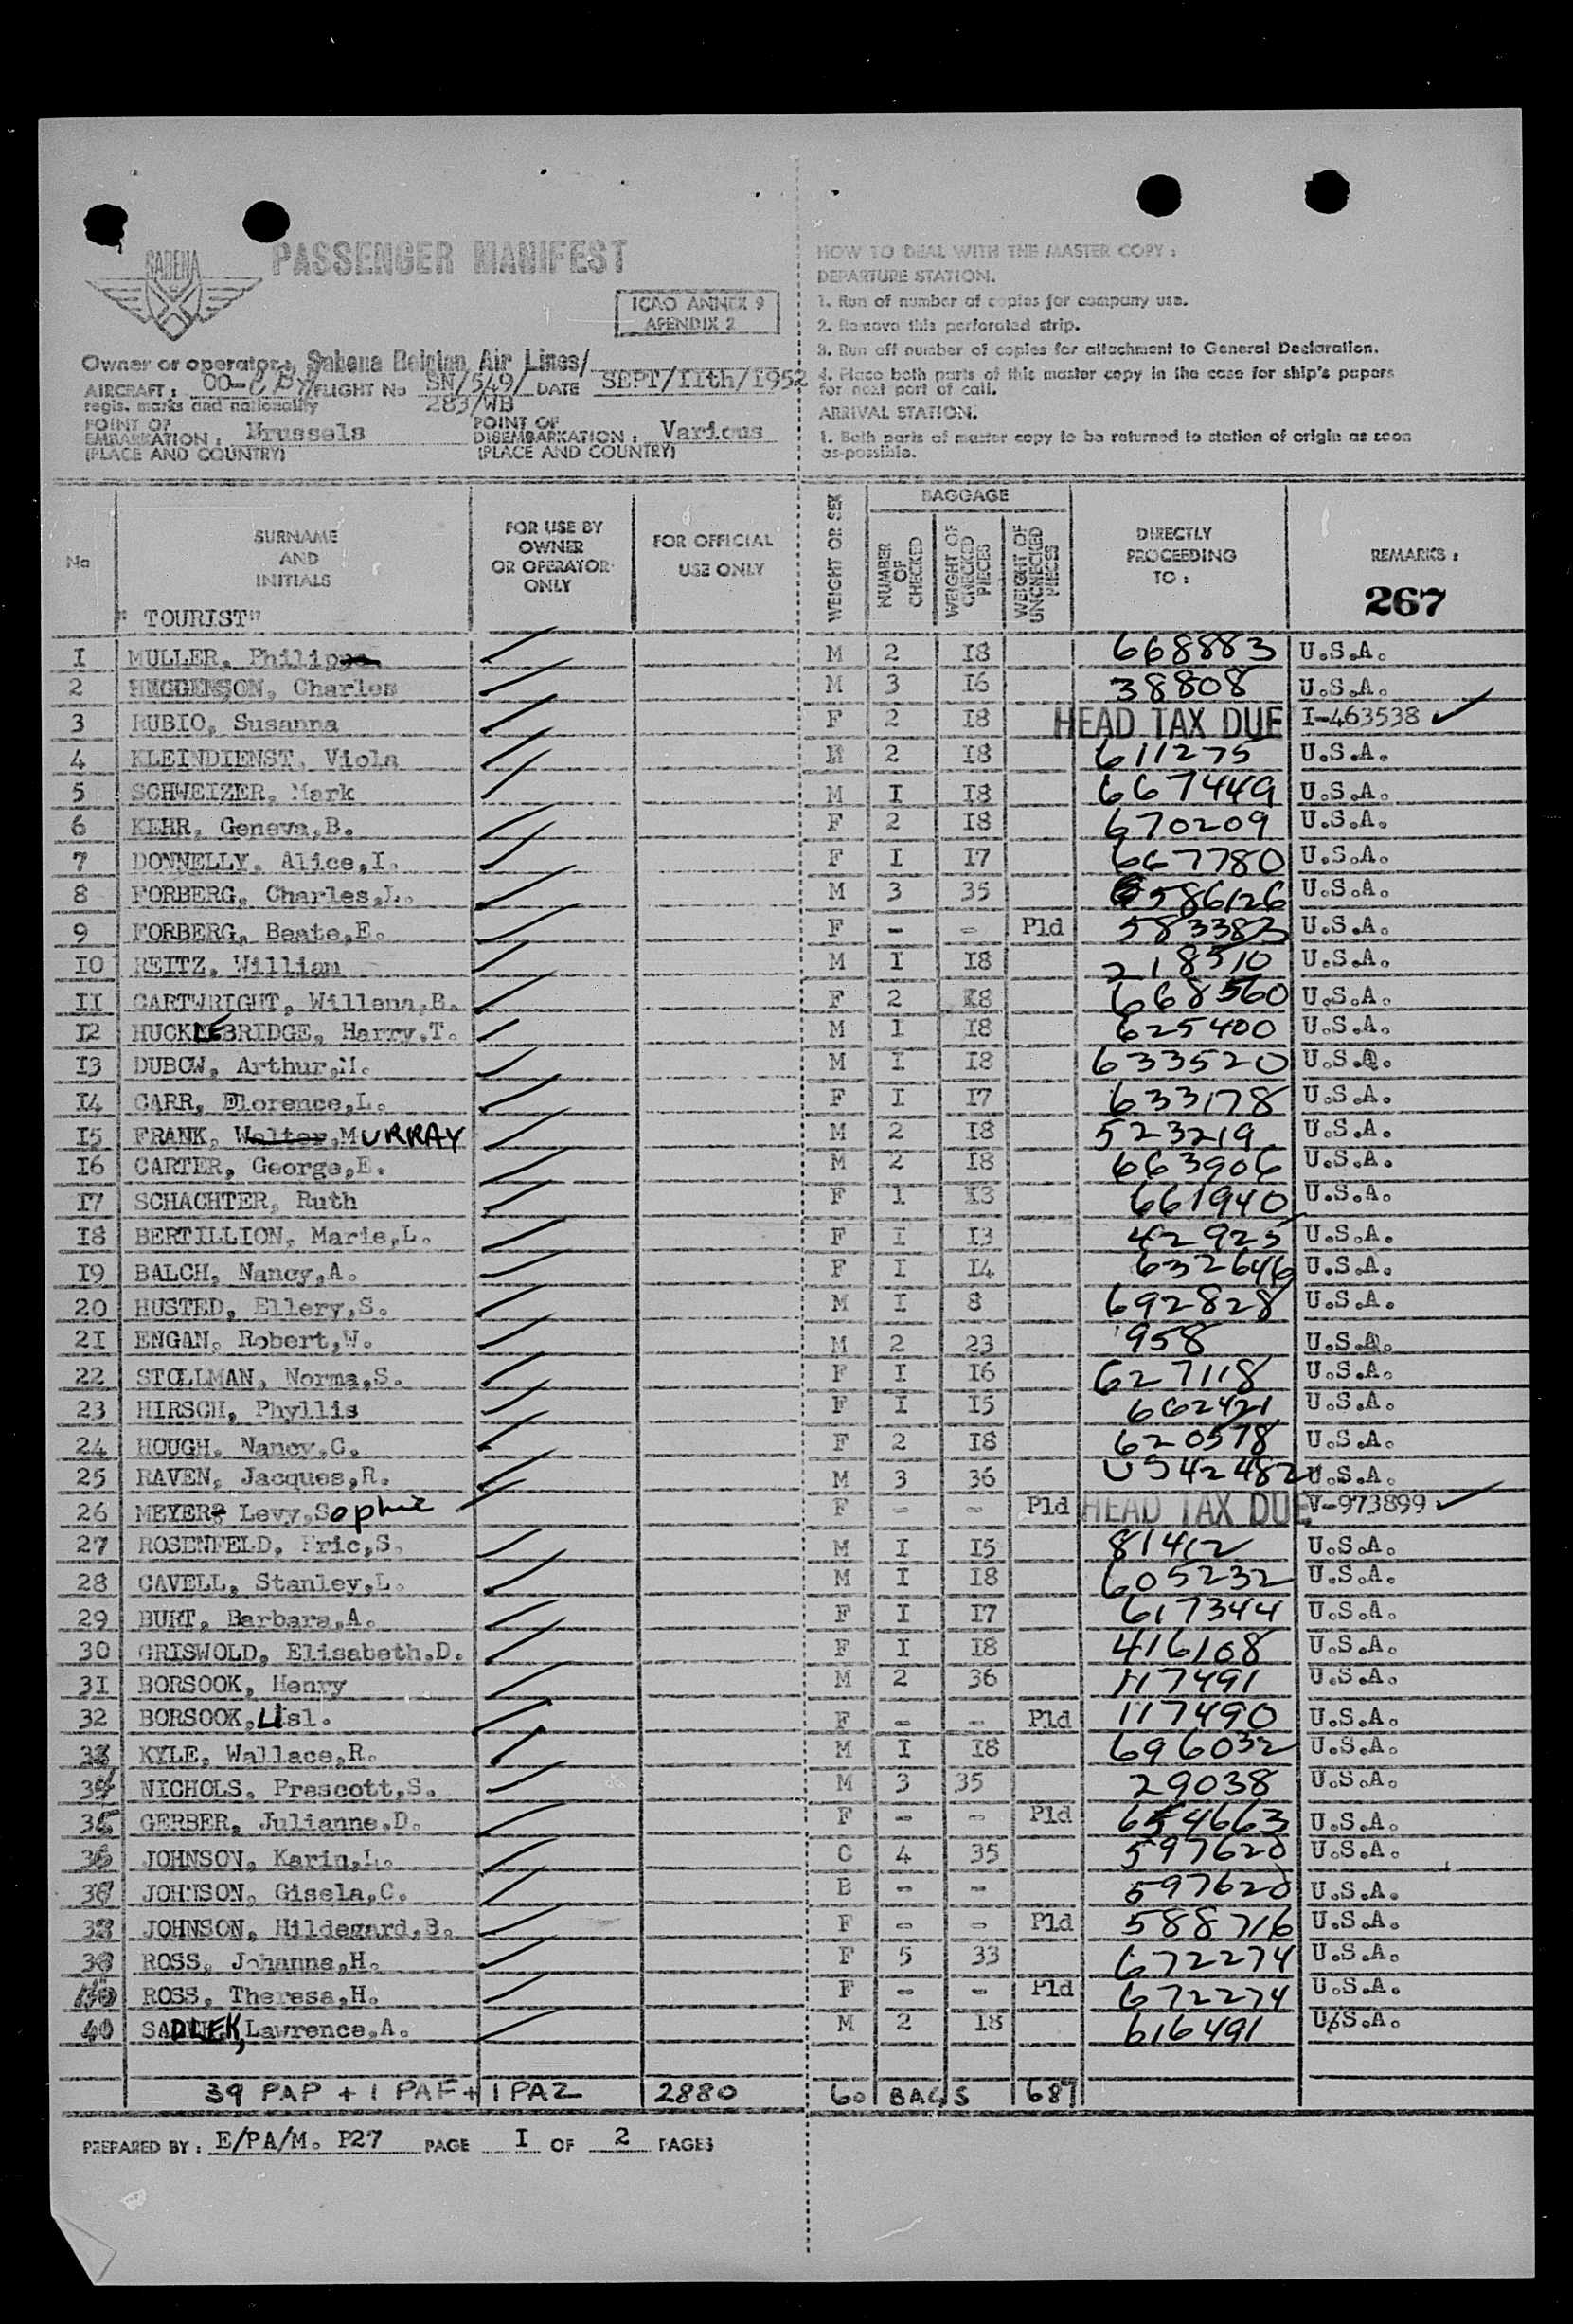 SABENA
PASSENGER MANIFEST
ICAO ANNEX 9
APENDIX 2
Owner or operator: Sabena Belgian Air Lines/
AIRCRAFT: OO- FLIGHT No SN/549/ DATE SEPT/11th/1952
regis. marks and nationality 283/WB
POINT OF EMBARKATION: Brussels POINT OF DISEMBARKATION: Various
(PLACE AND COUNTRY) (PLACE AND COUNTRY)
HOW TO DEAL WITH THE MASTER COPY:
DEPARTURE STATION.
1. Run of number of copies for company use.
2. Remove this perforated strip.
3. Run off number of copies for attachment to General Declaration.
4. Place both parts of this master copy in the case for ship's papers
for next port of call.
ARRIVAL STATION.
1. Both parts of master copy to be returned to station of origin as soon
as possible.
No SURNAME AND INITIALS FOR USE BY OWNER OR OPERATOR ONLY FOR OFFICIAL USE ONLY WEIGHT OR SEX BAGGAGE NUMBER OF CHECKED WEIGHT OF CHECKED PIECES WEIGHT OF UNCHECKED PIECES DIRECTLY PROCEEDING TO: REMARKS:
267
"TOURIST"
I MULLER, Philip M 2 I8 668883 U.S.A.
2 HEGGENSON, Charles M 3 I6 38808 U.S.A.
3 RUBIO, Susanna F 2 I8 HEAD TAX DUE I-463538
4 KLEINDIENST, Viola 2 I8 611275 U.S.A.
5 SCHWEIZER, Mark M I I8 667449 U.S.A.
6 KEHR, Geneva,B. F 2 I8 670209 U.S.A.
7 DONNELLY, Alice,I. F I I7 667780 U.S.A.
8 FORBERG, Charles,L. M 3 35 586126 U.S.A.
9 FORBERG, Beate,E. F - - Pld 583383 U.S.A.
IO REITZ, William M I I8 218510 U.S.A.
II CARTWRIGHT, Willena,B. F 2 I8 668560 U.S.A.
I2 HUCKLEBRIDGE, Harry.T. M 1 I8 625400 U.S.A.
I3 DUBOW, Arthur,M. M I I8 633520 U.S.A.
I4 CARR, Florence,L. F I I7 633178 U.S.A.
I5 FRANK, Walter,MURRAY M 2 I8 523219 U.S.A.
I6 CARTER, George,E. M 2 I8 663906 U.S.A.
I7 SCHACHTER, Ruth F 1 I3 661940 U.S.A.
I8 BERTILLION, Marie,L. F I I3 42925 U.S.A.
I9 BALCH, Nancy,A. F I I4 632646 U.S.A.
20 HUSTED, Ellery,S. M I 8 692828 U.S.A.
2I ENGAN, Robert,W. M 2 23 958 U.S.A.
22 STOLLMAN, Norma,S. F I I6 627118 U.S.A.
23 HIRSCH, Phyllis F I I5 662421 U.S.A.
24 HOUGH, Nancy,C. F 2 I8 620578 U.S.A.
25 RAVEN, Jacques,R. M 3 36 542482 U.S.A.
26 MEYER, Levy,Sophie F - - Pld HEAD TAX DUE V-973899
27 ROSENFELD, Eric,S. M I I5 81412 U.S.A.
28 CAVELL, Stanley,L. M I I8 605232 U.S.A.
29 BURT, Barbara,A. F I I7 617344 U.S.A.
30 GRISWOLD, Elisabeth.D. F I I8 416108 U.S.A.
3I BORSOOK, Henry M 2 36 117491 U.S.A.
32 BORSOOK, Lisl. F - - Pld 117490 U.S.A.
33 KYLE, Wallace,R. M I I8 696032 U.S.A.
34 NICHOLS, Prescott,S. M 3 35 29038 U.S.A.
35 GERBER, Julianne.D. F - - Pld 654663 U.S.A.
36 JOHNSON, Karin,L. C 4 35 597620 U.S.A.
37 JOHNSON, Gisela,C. B - - 597620 U.S.A.
38 JOHNSON, Hildegard,B. F - - Pld 588716 U.S.A.
39 ROSS, Johanna,H. F 5 33 672274 U.S.A.
40 ROSS, Theresa,H. F - - Pld 672274 U.S.A.
40 SADLEK, Lawrence,A. M 2 18 616491 U.S.A.
39 PAP + 1 PAF + 1 PAZ 2880 60 BAGS 687
PREPARED BY: E/PA/M. P27 PAGE I OF 2 PAGES